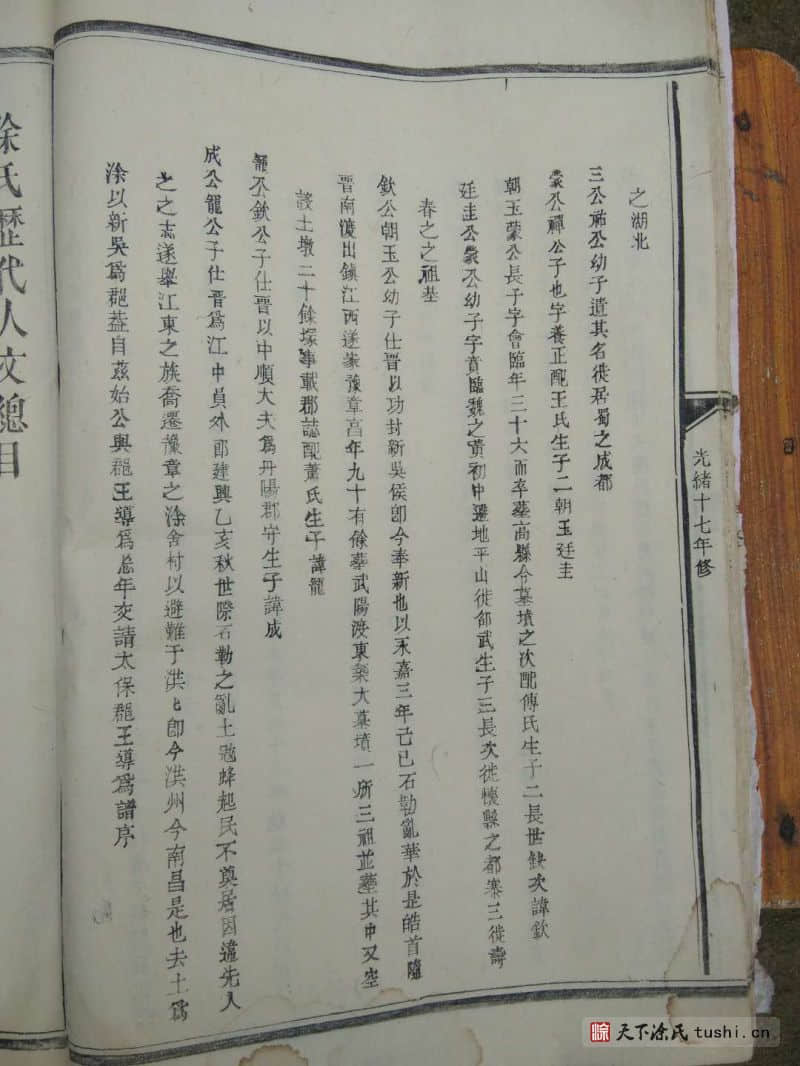 光緒十七年修
之湖北
三公祐公幼子遺其名徙居蜀之成都
蒙公禪公子也字養正配王氏生子二朝玉廷圭
朝玉蒙公長子字會臨年三十六而卒墓高縣今墓墳之次配傅氏生子二長世缺次諱欽
廷圭公蒙公幼子字賁臨魏之黃初中遷地平山徙邵武生子三長次徙懷縣之都寨三徙壽
春之之祖墓
欽公朝玉公幼子仕晋以功封新吳侯卽今奉新也以永嘉三年己巳石勒亂華於是皓首隨
晋南渡出鎮江西遂家豫章亯年九十有餘墓武陽渡東築大墓墳一所三祖並墓其中又空
設土墩二十餘塚事載郡誌配蕭氏生子諱龍
龍公欽公子仕晋以中順大夫爲丹陽郡守生子諱成
成公龍公子仕晋爲江中員外郎建興乙亥秋世際石勒之亂土冦蜂起民不奠居因遵先人
之之志遂舉江東之族喬遷豫章之涂舍村以避難于洪〻卽今洪州今南昌是也去土爲
涂以新吳爲郡葢自茲始公與郡王導爲忘年交請太保郡王導爲譜序
涂氏歷代人文總目
涂 天下涂氏 tushi.cn